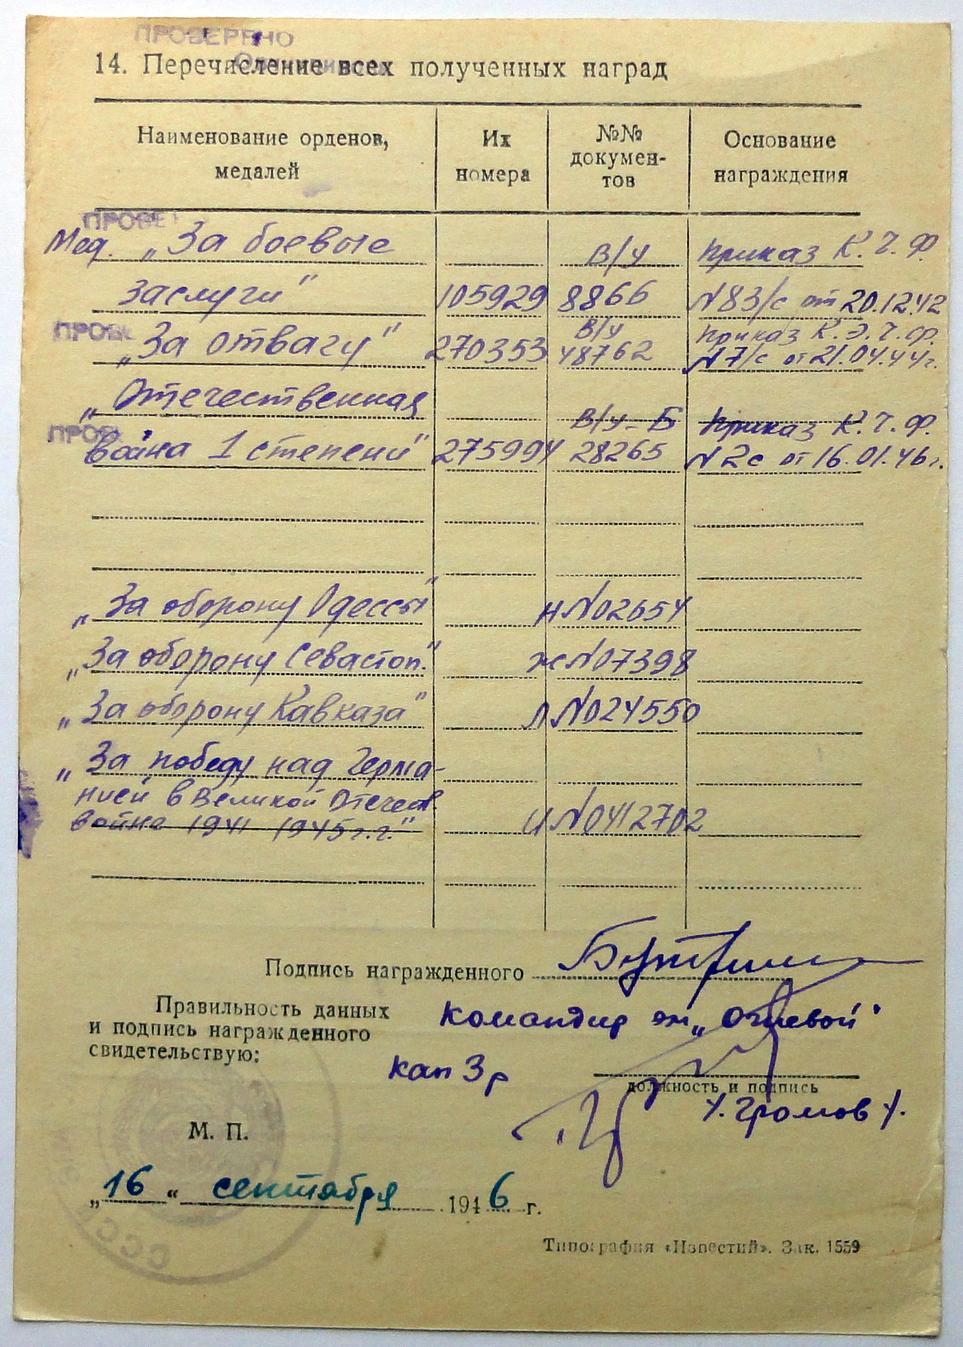 ПРОВЕРЕНО
14. Перечисление всех полученных наград
Наименование орденов, медалей
Их номера
№№ докумен- тов
Основание награждения
ПРОВЕ
Мед. „За боевые в/у приказ К.Ч.Ф.
заслуги" 105929 8866 N83/с от 20.12.42
ПРОВЕ
„За отвагу" 270353 в/у 48762 приказ К.Э.Ч.Ф. N7/с от 21.04.44г.
„Отечественная в/у-Б приказ К.Ч.Ф.
ПРОВ
война 1 степени" 275994 28265 N2с от 16.01.46г.
„За оборону Одессы" НN02654
„За оборону Севастоп." жN07398
„За оборону Кавказа" лN024550
„За победу над Герма-
нией в Великой Отечеств.
война 1941 1945г.г." иN0412702
Подпись награжденного
Правильность данных
и подпись награжденного
свидетельствую:
командир эм „Огневой"
кап 3 р
должность и подпись
/.Громов/.
М. П.
СССР
„16" сентября 1946 г.
Типография «Известий». Зак. 1559